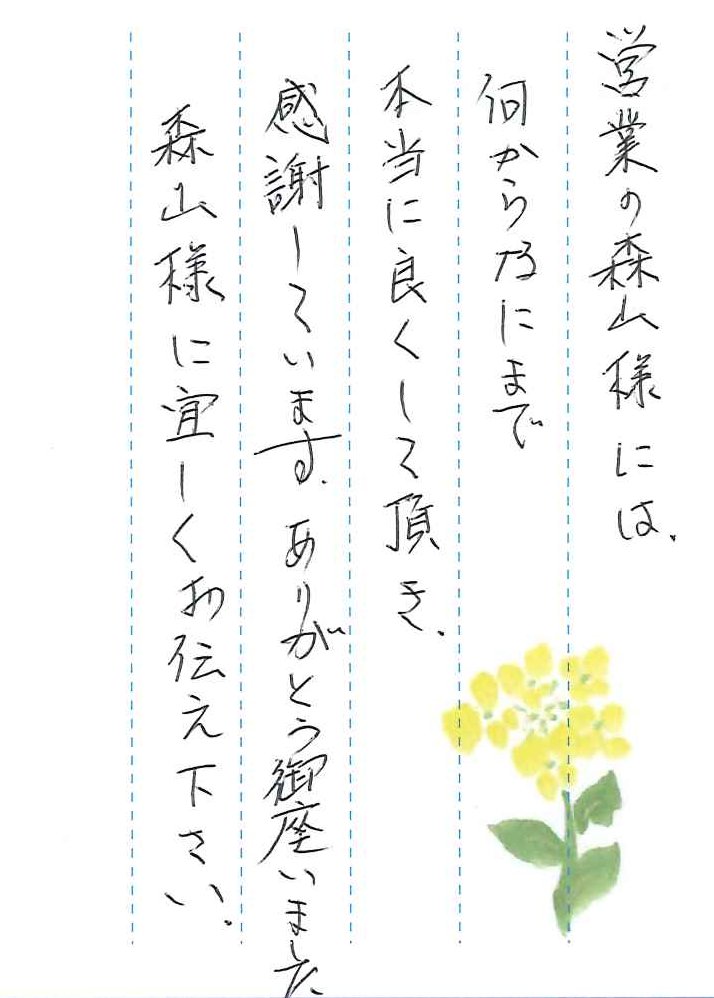 営業の森山様には、
何から乃にまで
本当に良くして頂き、
感謝しています。ありがとう御座いました
森山様に宜しくお伝え下さい。